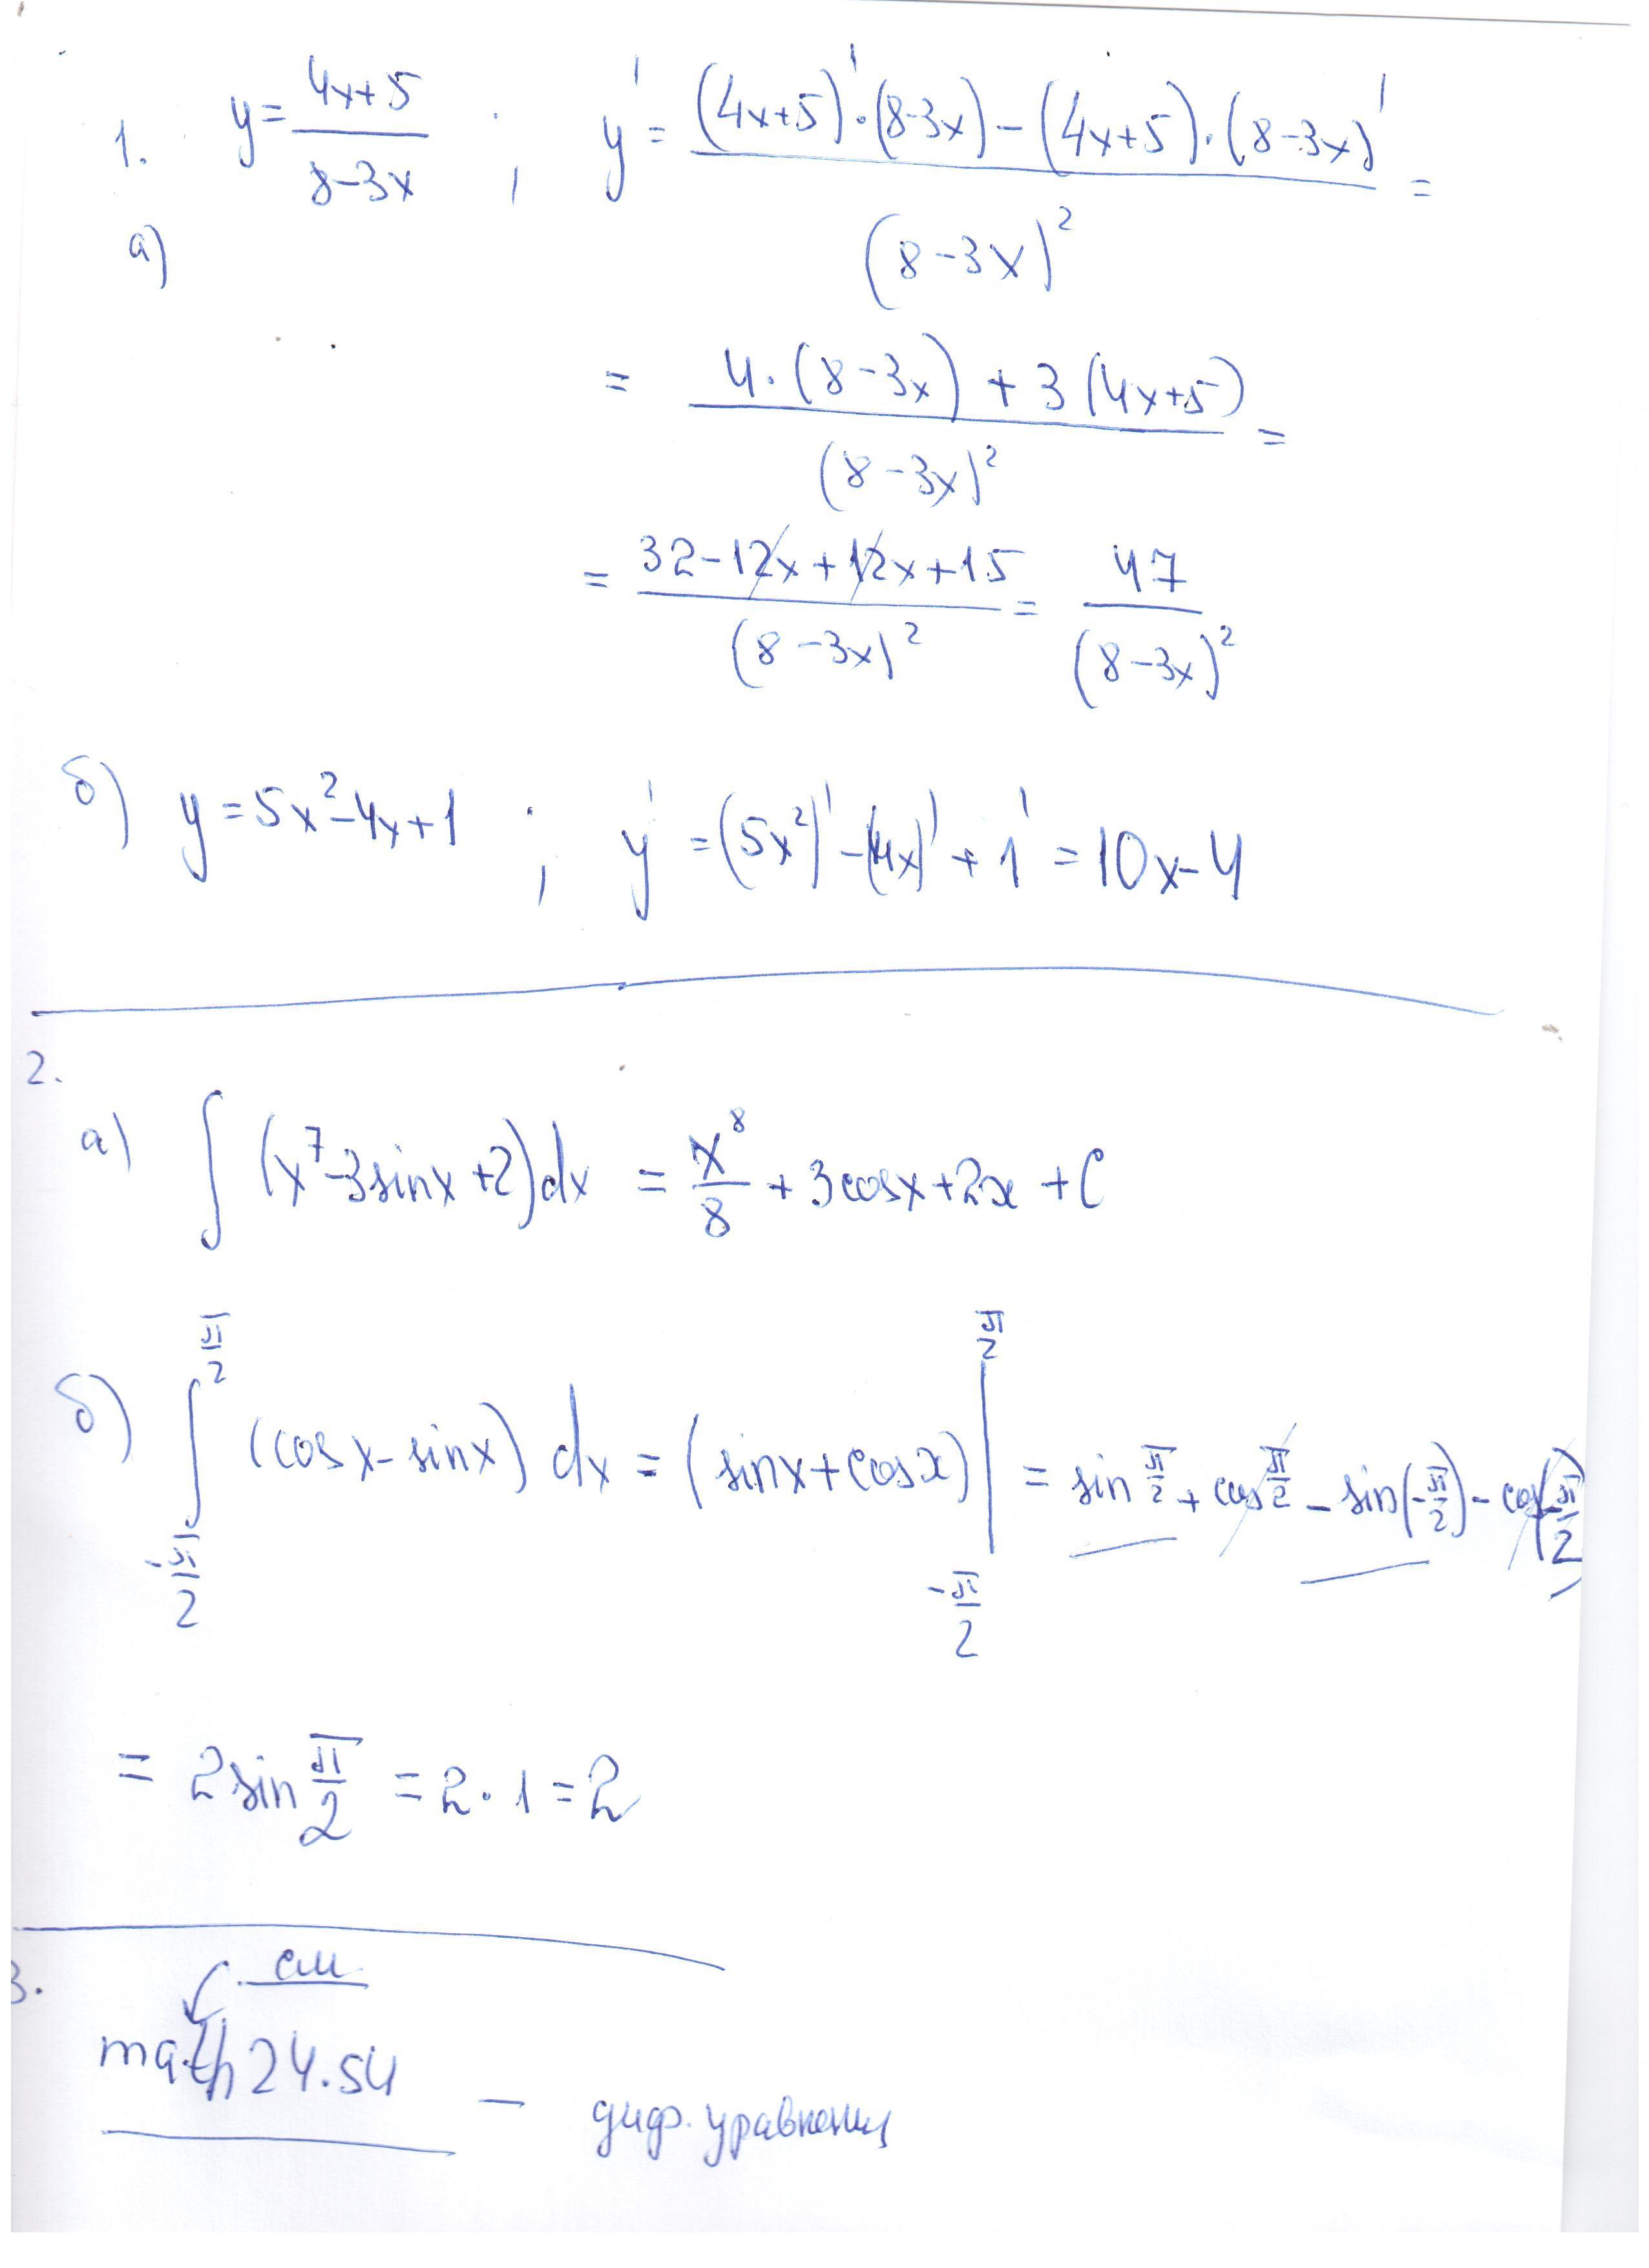 1. y = (4x+5)/(8-3x) ; y' = ((4x+5)'·(8-3x) - (4x+5)·(8-3x)')/(8-3x)² =
а)
= (4·(8-3x) + 3(4x+5))/(8-3x)² =
= (32-12x+12x+15)/(8-3x)² = 47/(8-3x)²
б) y = 5x²-4x+1 ; y' = (5x²)' - (4x)' + 1' = 10x-4
2.
а) ∫(x⁷-3sinx+2)dx = x⁸/8 + 3cosx+2x+C
б) ∫_{-π/2}^{π/2} (cosx-sinx) dx = (sinx+cosx)|_{-π/2}^{π/2} = sin π/2 + cos π/2 - sin(-π/2) - cos(-π/2)
= 2sin π/2 = 2·1 = 2
3. см.
math24.su – диф. уравнения